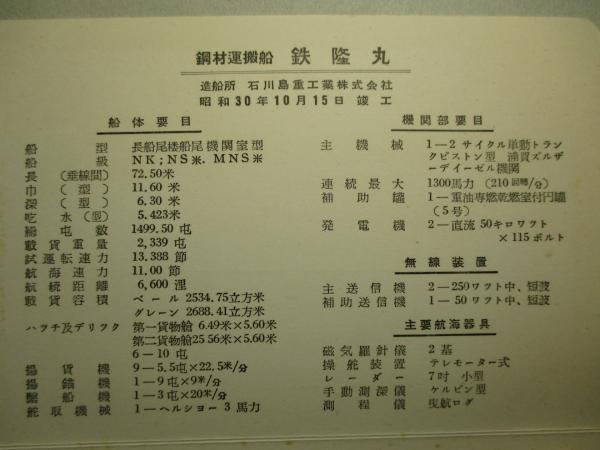 鋼材運搬船　鉄隆丸
造船所　石川島重工業株式会社
昭和30年10月15日　竣工
船体要目
船型　長船尾楼船尾機関室型
船級　NK;NS※. MNS※
長（垂線間）　72.50米
巾（型）　11.60 米
深（型）　6.30 米
吃水（型）　5.423米
総屯数　1499.50 屯
載貨重量　2,339 屯
試運転速力　13.388 節
航海速力　11.00 節
航続距離　6,600 浬
載貨容積　ベール 2534.75立方米
グレーン 2688.41立方米
ハッチ及デリック　第一貨物艙 6.49米×5.60米
第二貨物艙25.56米×5.60米
6—10 屯
揚貨機　9—5.5屯×22.5米/分
揚錨機　1—9屯×9米/分
繋船機　1—3屯×20米/分
舵取機械　1—ヘルショー 3 馬力
機関部要目
主機械　1—2 サイクル単動トラン
クピストン型　浦賀ズルザ
ーデイーゼル機関
連続最大　1300馬力（210回転/分）
補助罐　1—重油専燃乾燃室付円罐
（5号）
発電機　2—直流 50キロワット
×115ボルト
無線装置
主送信機　2—250ワット中、短波
補助送信機　1—50ワット中、短波
主要航海器具
磁気羅針儀　2 基
操舵装置　テレモーター式
レーダー　7吋　小型
手動測深儀　ケルビン型
測程儀　曳航ログ